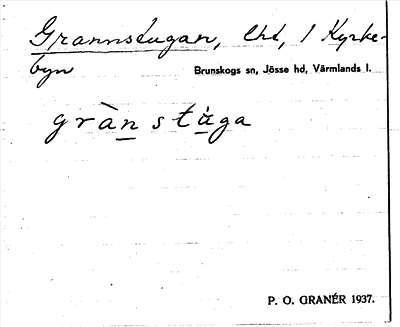 Grannstugan, lht, 1 Kyrke-
byn
Brunskogs sn, Jösse hd, Värmlands l.
gràn stùga
P. O. GRANÉR 1937.